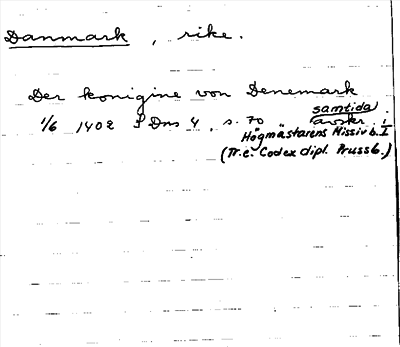 Danmark, rike.
Der konigine von Denemark
samtida
1/6 1402 SDns 4, s. 70 avskr. i
Högmästarens Missivb. I
(Tr. e. Codex dipl. Pruss 6.)